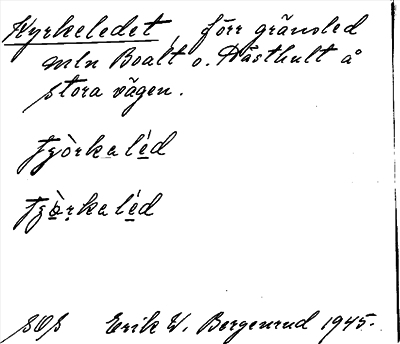 Kyrkeledet, förr gränsled
mln Boalt o. Dåsthult å
stora vägen.
tʒòrkaléd
tʒò̱ṛkaléd
SOS Erik W. Bergenrud 1945.